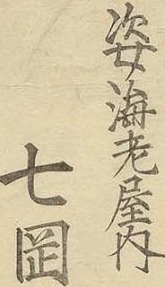 姿海老屋内
七岡